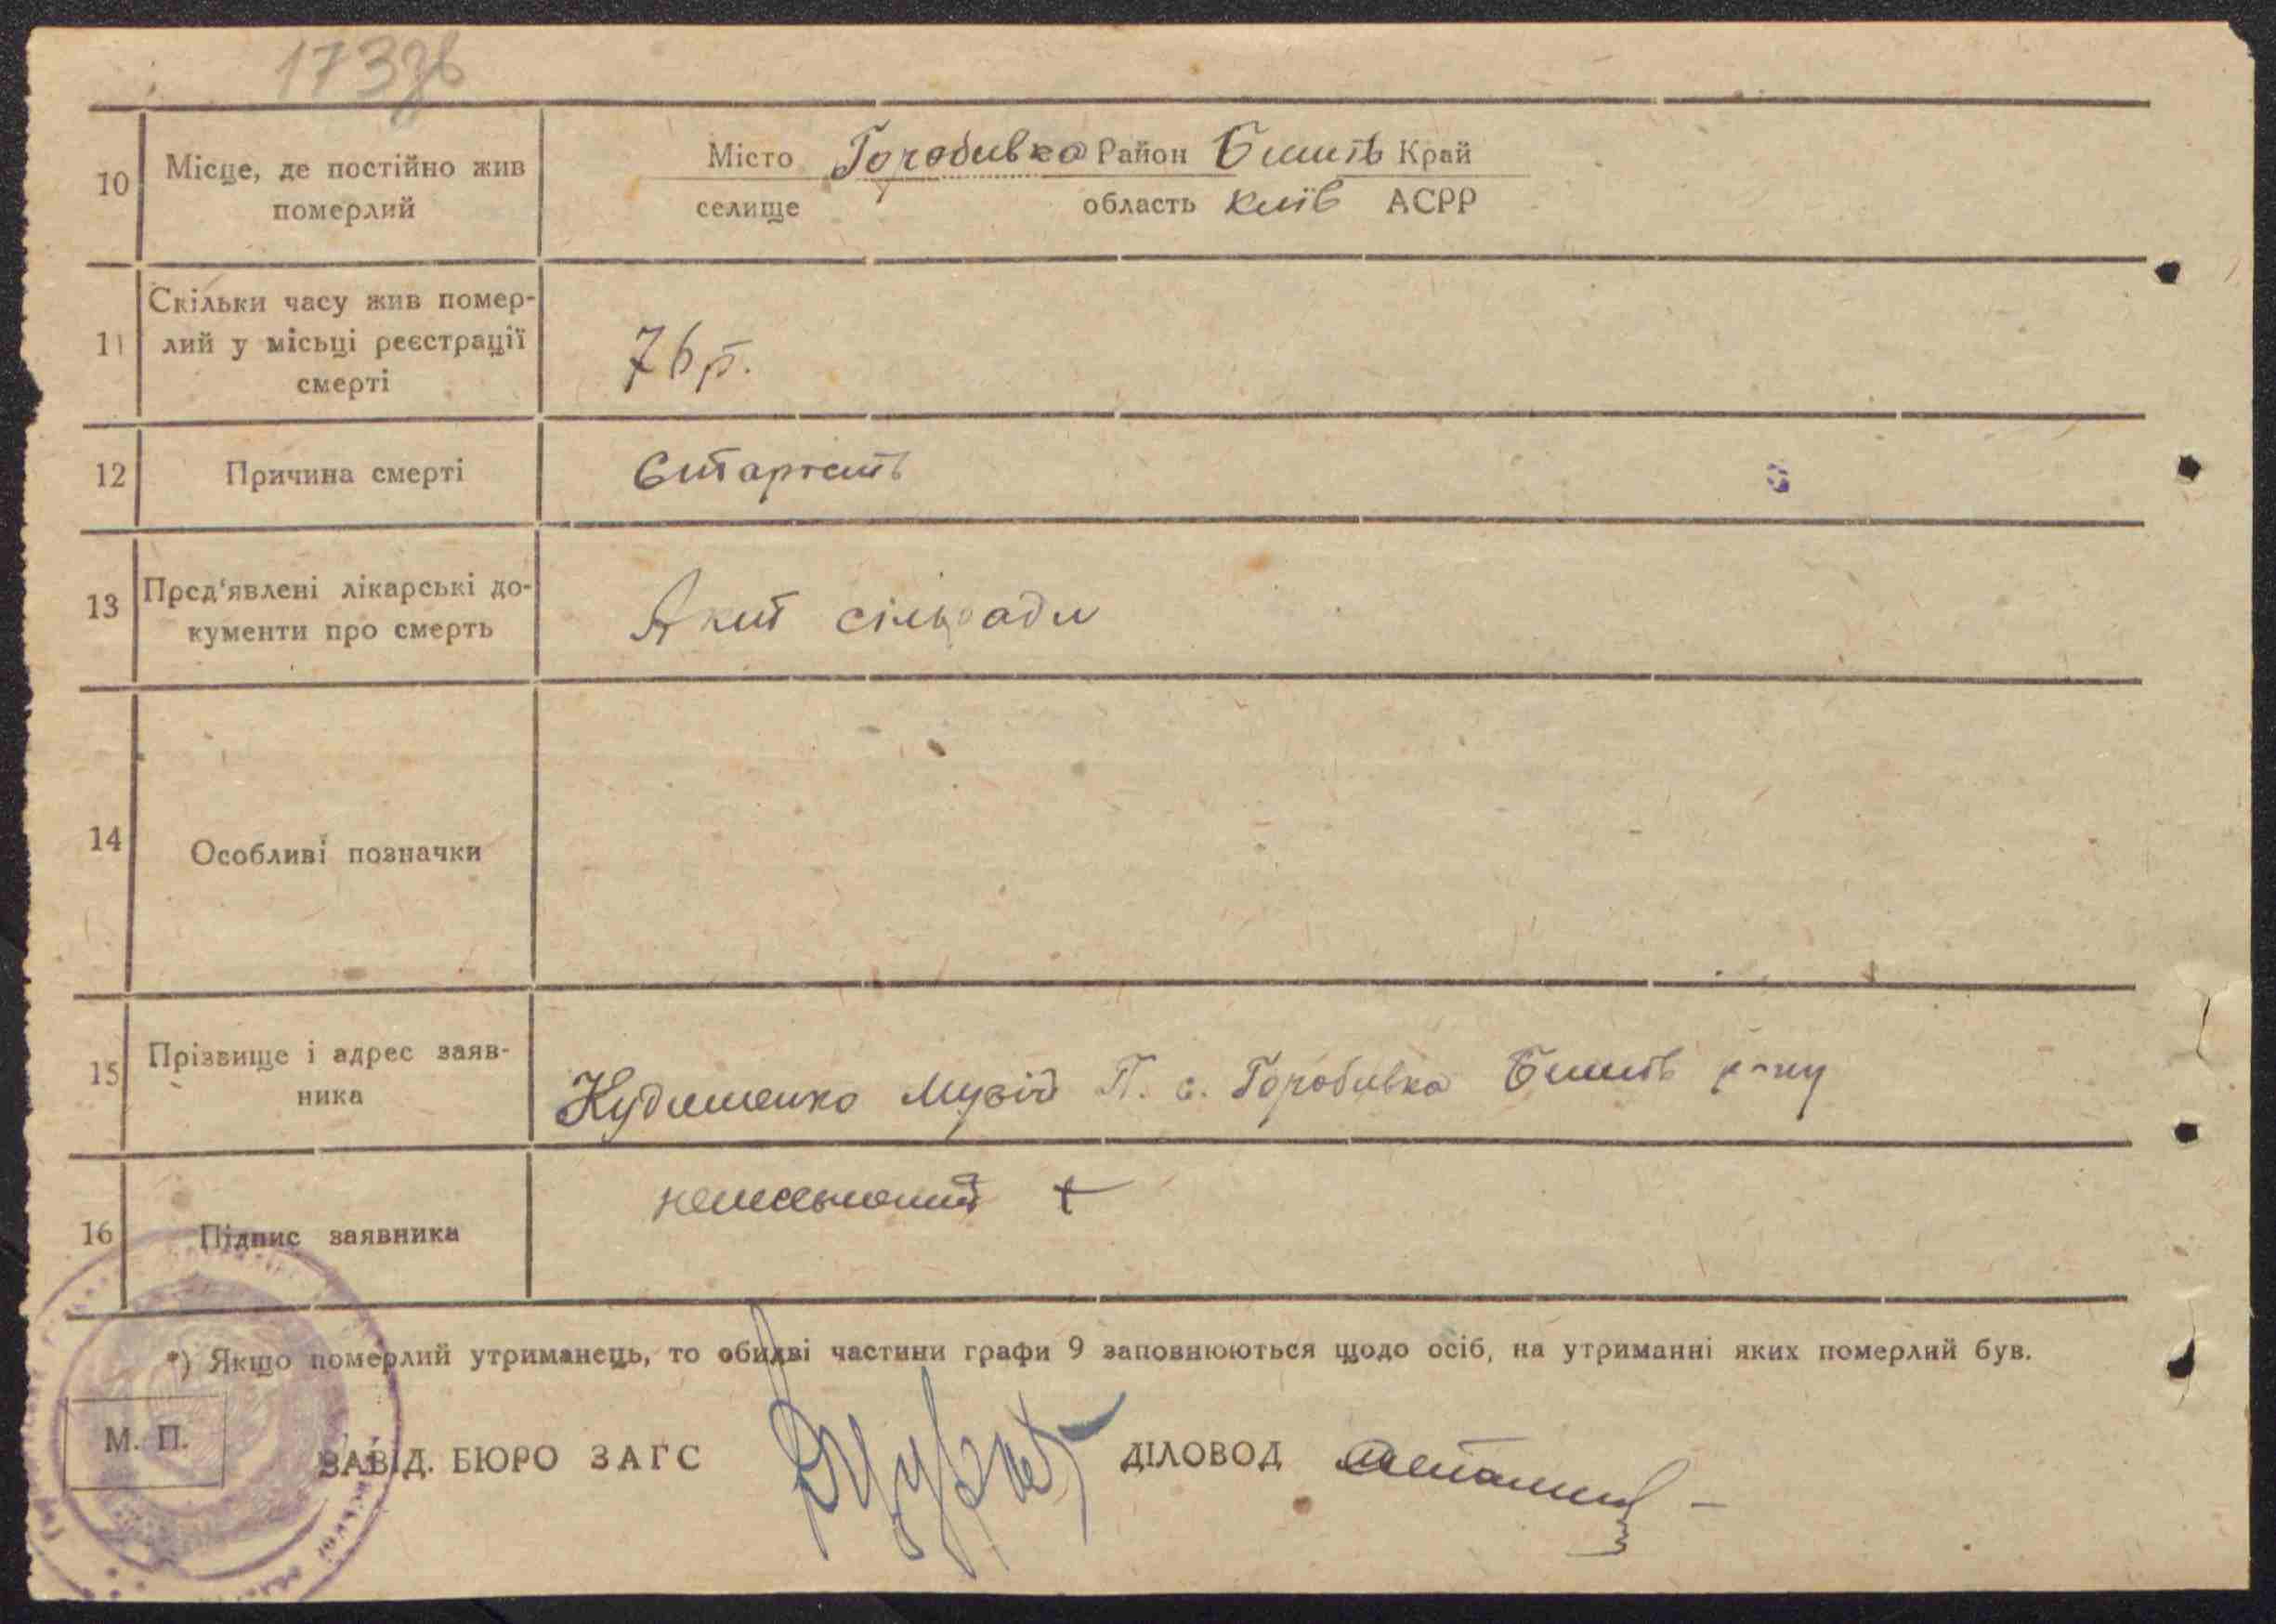 173зв
10 Місце, де постійно жив померлий
Місто Горобивка Район Бишів Край
селище область Київ АСРР
11 Скільки часу жив помер-
лий у місьці реєстрації
смерті
76 р.
12 Причина смерті Старость
13 Пред'явлені лікарські до-
кументи про смерть
Акт сільради
14 Особливі позначки
15 Прізвище і адрес заяв-
ника
Кудименко Мусій П. с. Горобивка Бишів р-ну
16 Підпис заявника
неписьмений +
*) Якщо померлий утриманець, то обидві частини графи 9 заповнюються щодо осіб, на утриманні яких померлий був.
М. П.
ЗАВІД. БЮРО ЗАГС ДІЛОВОД